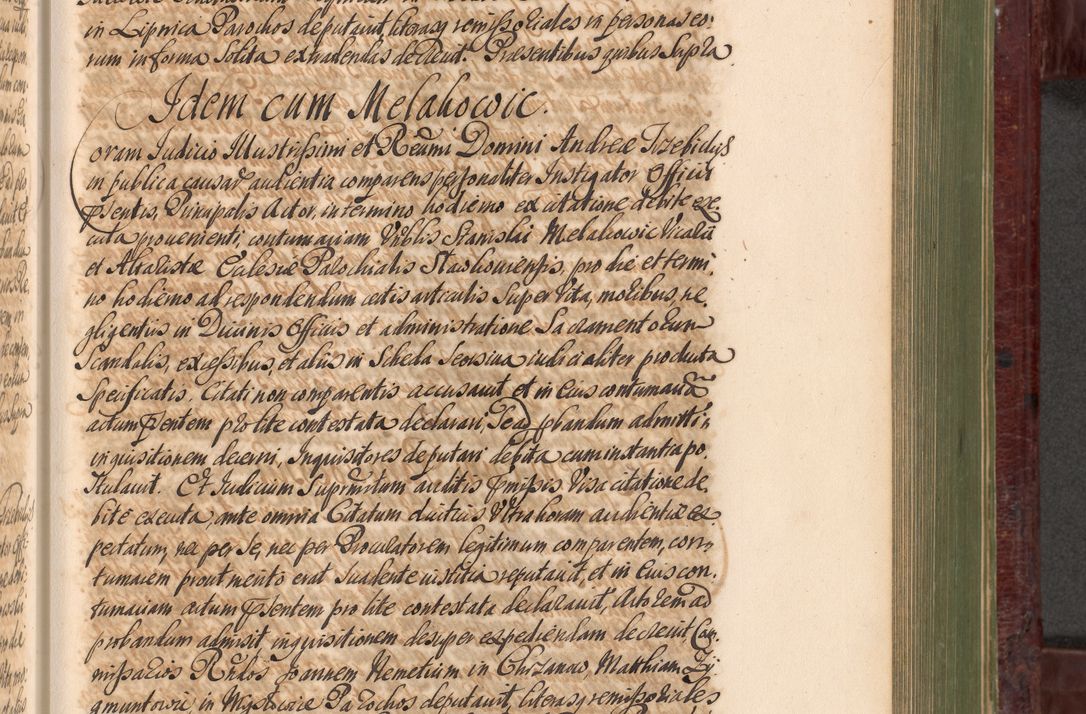 in Lipnica Parochos deputavit, literasq remissoriales in personas eo-
rum in forma solita extradendas decrevit. Praesentibus quibus supra.
Idem cum Melahowic.
Coram Judicio Illustrissimi et Reũmi Domini Andreæ Trzebickj
in publica causar̃ audientia comparens personaliter Instigator Officii
Pñsentis, Principalis Actor, in termino hodierno ex citatione debite exe-
cuta provenienti, contumaciam Vrblis Stanislai Melahowic Vicarii
et Altaristæ Ecclesiæ Parochialis Slawkoviensis, pro die et termi-
no hodierno ad respondendum certis articulis super vita, moribus, ne-
gligentiis in Divinis Officiis et administratione Sacramentorum
Scandalis, excessibus, et aliis in Scheda seorsiva iudicialiter producta
Specificatis. Citati non comparentis accusavit, et in eius contumaciã
actum pñsentem pro lite contestata declarari, Se ad probandum admitti,
inquisitionem decerni, Inquisitores deputari debita cum instantia po-
stulavit. Et Judicium Supramtum auditis pmissis, Visa citatione de-
bite executa, ante omnia Citatum diutius Vltra horam audientiæ ex-
pectatum, nec per se, nec per Procuratorem legitimum comparentem, con-
tumacem prout merito erat suadente iustitia reputavit, et in Eius con-
tumaciam actum pñsentem pro lite contestata declaravit, Actorem ad
probandum admisit, inquisitionem desuper expediendam decrevit Com-
missarios Rñdos Joannem Nemetium in Chrzanow, Matthiam Zy-
gmuntowic in Myslowice Parochos deputavit, literasq remissoriales